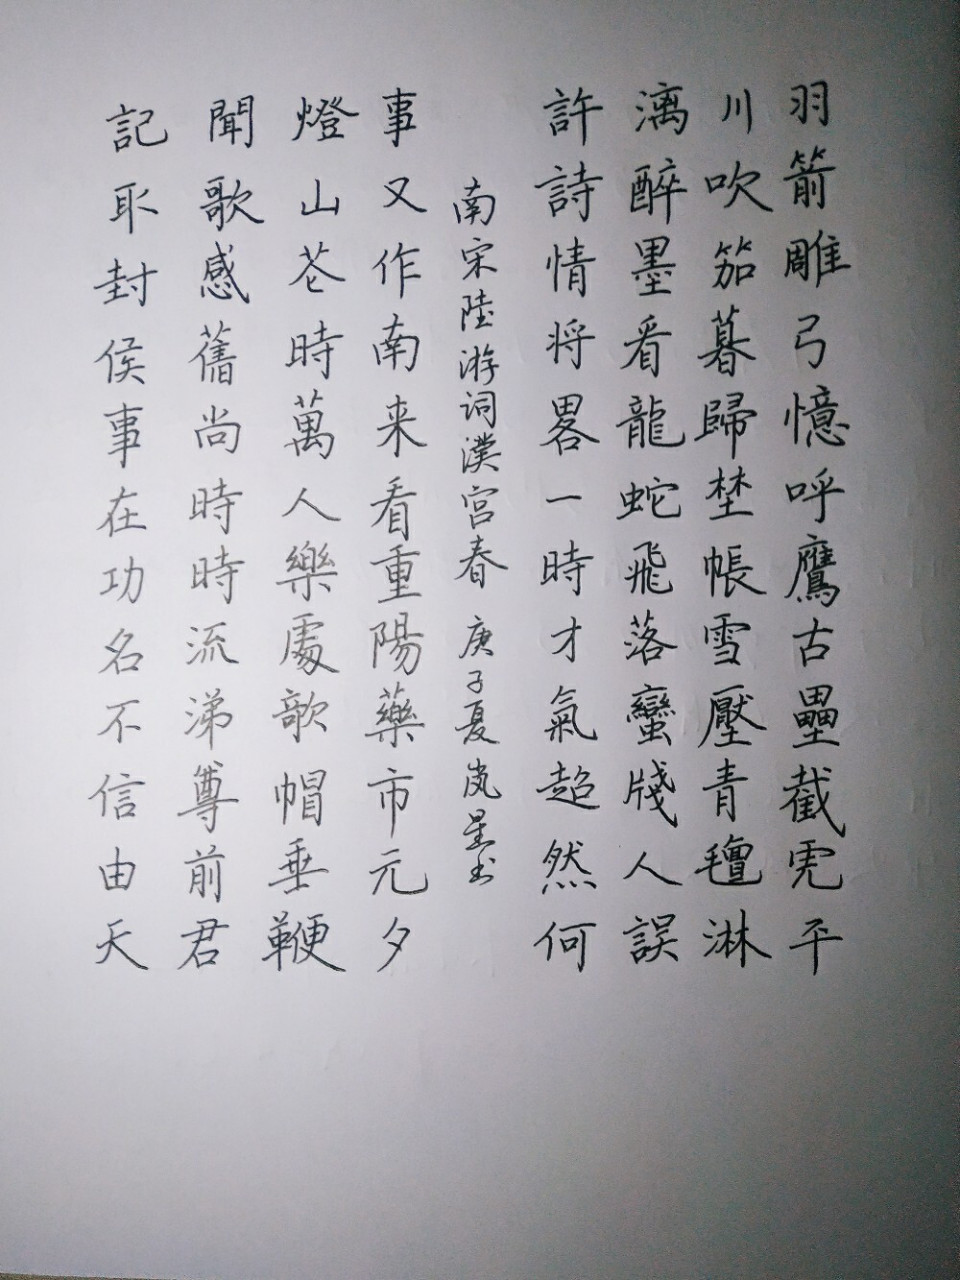 羽箭雕弓憶呼鷹古壘截虎平
川吹笳暮歸埜帳雪壓青氈淋
漓醉墨看龍蛇飛落蠻牋人誤
許詩情将畧一時才氣超然何
南宋陸游詞漢宮春 庚子夏岚星书
事又作南来看重陽藥市元夕
燈山芲時萬人樂處欹帽垂鞭
聞歌感舊尚時時流涕尊前君
記取封侯事在功名不信由天